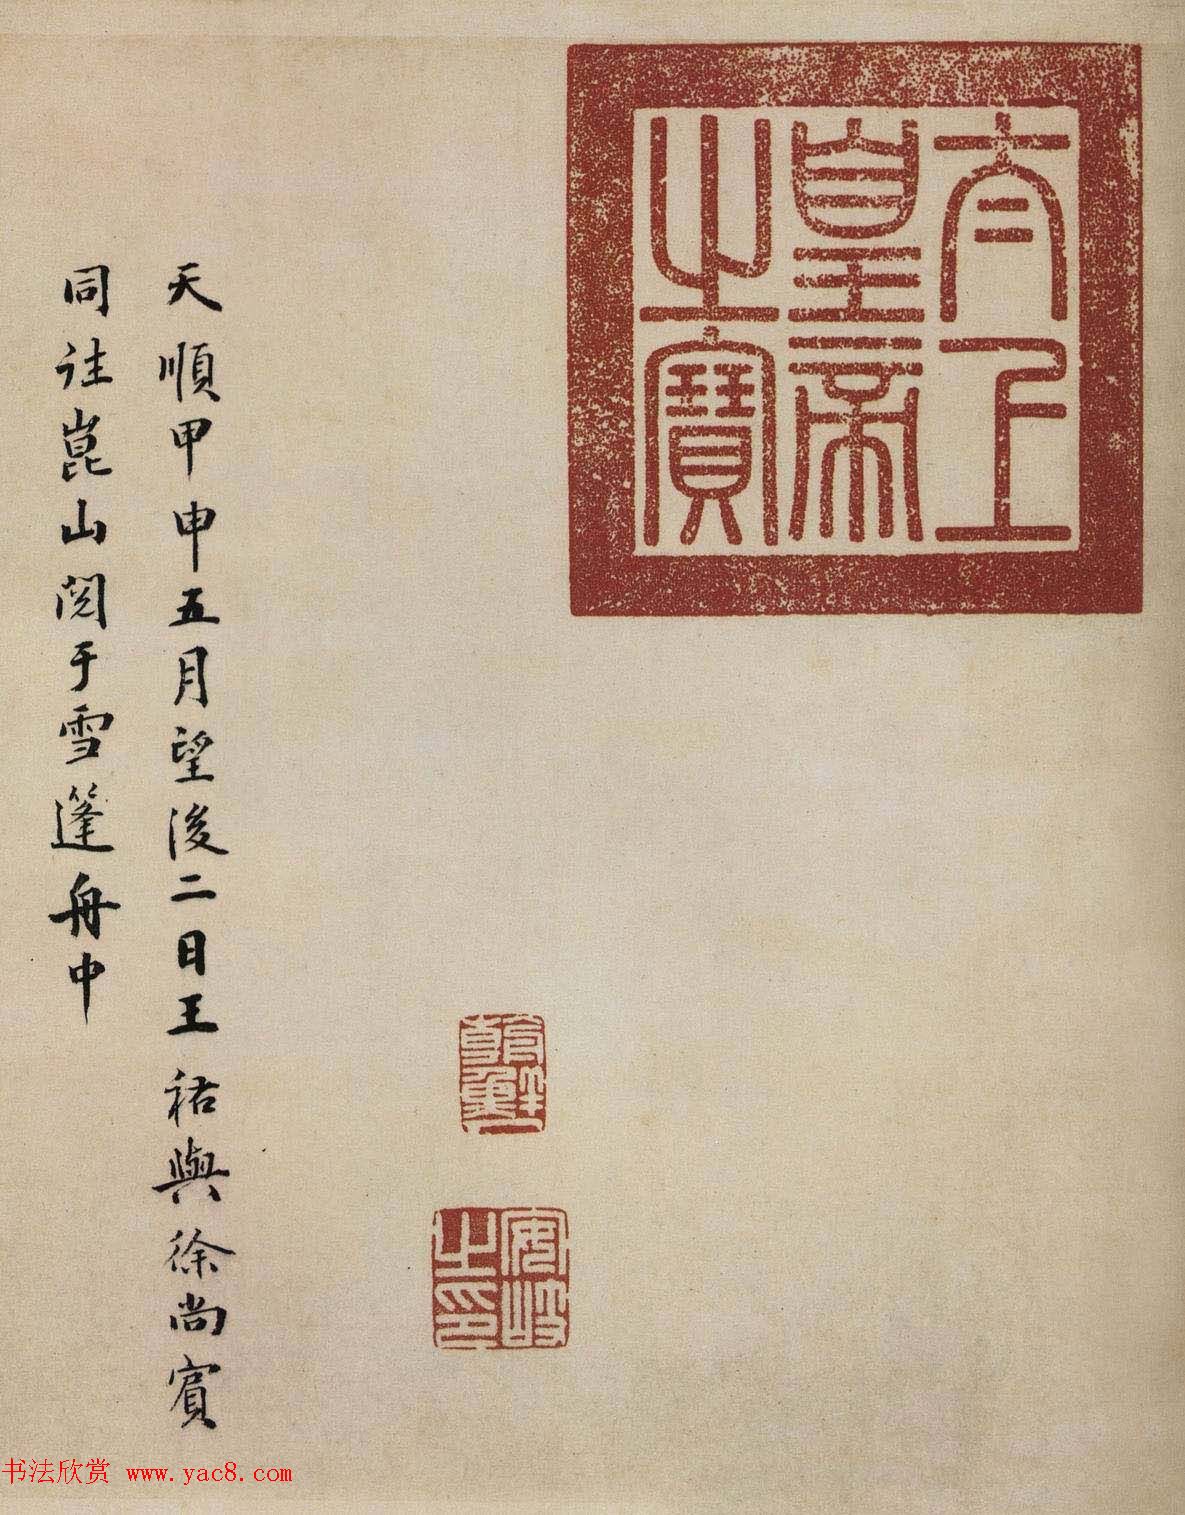 太上
皇帝
之寶
天順甲申五月望後二日王祐與徐尚賓
同往崑山閱于雪篷舟中
安岐
之印
书法欣赏 www.yac8.com